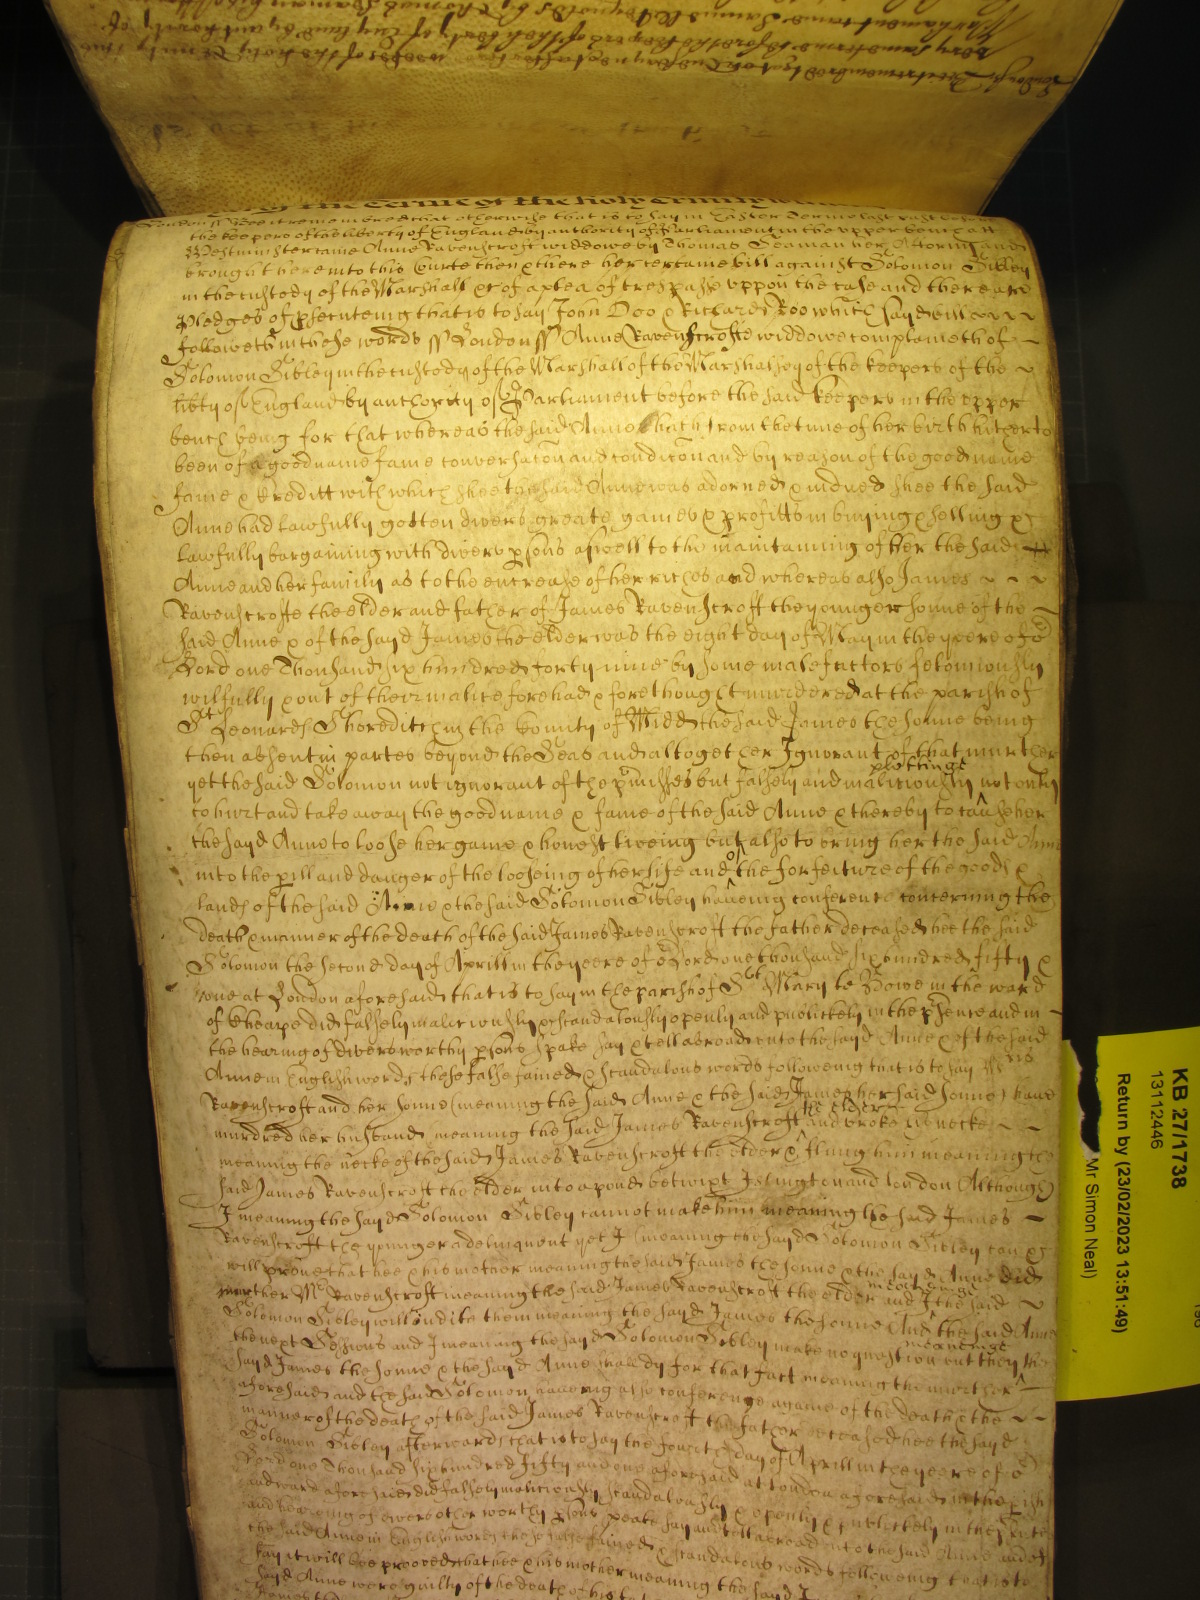 of the terme of the holy Trinity
London ss Bee it remembred that otherwise that is to say in Easter Terme last past before
the keepers of the liberty of England by authority of Parliament in the upper bench att
Westminster came Anne Ravenscroft widdowe by Thomas Seaman her Attorny and
brought here into this Courte then & there her certaine bill against Solomon Sibley
in the custody of the Marshall &c of a plea of trespasse uppon the case and there are
pledges of psecuteing that is to say John Doo & Richard Roo which sayd bill
followeth in these words ss London ss Anne Ravenscrofte widdowe complaineth of
Solomon Sibley in the custody of the Marshall of the Marshalsey of the keepers of the
libty of England by authority of Parliament before the said keepers in the upper
bench being for that whereas the said Anne hath from the tyme of her birth hitherto
been of a good name fame conversacon and condicon and by reason of the good name
fame & Creditt with which shee the said Anne was adorned & indued shee the said
Anne had lawfully gotten divers greate gaines & profitts in buying & selling &
lawfully bargaining with divers psons aswell to the maintaining of her the said
Anne and her family as to the encrease of her riches and whereas also James
Ravenscrofte the elder and father of James Ravenscroft the younger sonne of the
said Anne & of the sayd James the elder was the eight day of May in the yeere of or
Lord one Thousand six hundred forty nine by some malefactors feloniously
wilfully & out of their malice forehad & forethought murdered at the parish of
St Leonards Shoreditch in the County of Midd the said James the sonne being
then absent in partes beyond the Seas and altogether Ignorant of that murther
yet the said Solomon not ignorant of the pmisses but falsely and maliciously plottinge not only
to hurt and take away the good name & fame of the said Anne & thereby to cause her
the sayd Anne to loose her gaine & honest liveing but also to bring her the said Anne
into the pill and danger of the looseing of her life and of the forfeiture of the goods &
lands of the said Anne & the said Solomon Sibley haveing conference concerning the
death & manner of the death of the said James Ravenscroft the father deceased hee the said
Solomon the second day of Aprill in the yeere of or Lord one thousand six hundred fifty &
one at London aforesaid that is to say in the parish of St Mary le Bowe in the ward
of Cheape did falsely maliciously & scandalously openly and publickely in the psence and in
the hearing of divers worthy psons speake say & tell abroad unto the sayd Anne & of the said
Anne in English words these false fained & scandalous words following that is to say Mris
Ravenscroft and her sonne (meaning the said Anne & the said James her said sonne) have
murdred her husband meaning the said James Ravenscroft the elder and broke his necke
meaning the necke of the said James Ravenscroft the elder & flung him meaning the
said James Ravenscroft the elder into a pond betwixt Islington and London Although
I meaning the sayd Solomon Sibley cannot make him meaning the said James
Ravenscroft the younger a delinquent yet I (meaning the sayd Solomon Sibley can &
will prove that hee & his mother meaning the said James the sonne & the sayd Anne did
murther Mr Ravenscroft meaning the said James Ravenscroft the elder and I meaninge the said
Solomon Sibley will indite them meaning the sayd James the sonne And the said Anne
the next Sessions and I meaning the sayd Solomon Sibley make no question but they meaninge the
sayd James the sonne & the sayd Anne shall dy for that fact meaning the murther
aforesaid and the said Solomon haveing also conference againe of the death & the
manner of the death of the said James Ravenscroft the father deceased hee the sayd
Solomon Sibley afterwards that is to say the fourth day of Aprill in the yeere of or
Lord one Thousand six hundred fifty and one aforesaid at London aforesaid in the pish
and ward aforesaid did falsely maliciously scandalously & openly & publickely in the psence
and heareing of divers other worthy psons speake say and tell abroad unto the said Anne and of
the said Anne in English words these false fained & scandalous words following that is to
say it will bee prooved that hee & his mother meaning the sayd J
sayd Anne were guilty of the death of his
KB 27/1738
13112446
Return by (23/02/2023 13:51:49)
Mr Simon Neal)